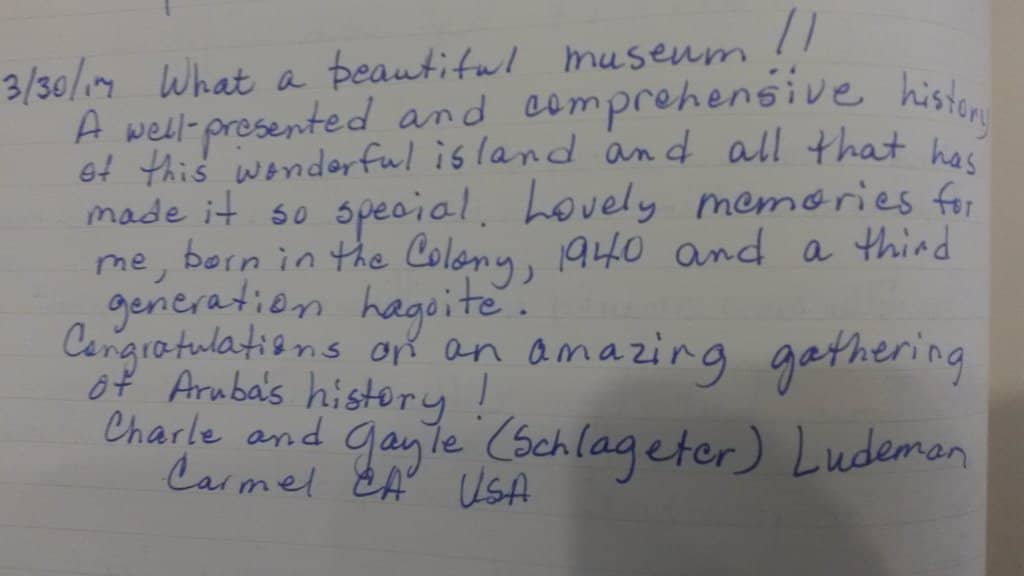 3/30/17 What a beautiful museum !!
A well-presented and comprehensive history
of this wonderful island and all that has
made it so special. Lovely memories for
me, born in the Colony, 1940 and a third
generation lagoite.
Congratulations on an amazing gathering
of Aruba's history !
Charle and Gayle (Schlageter) Ludeman
Carmel CA USA